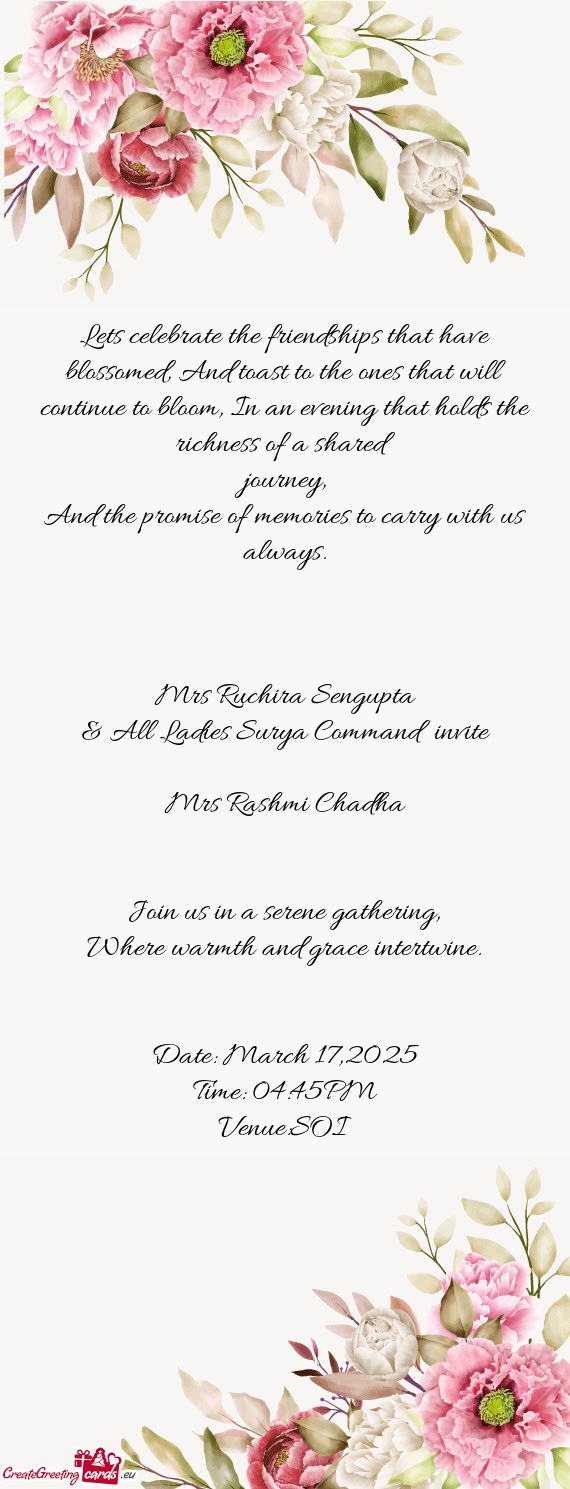 Lets celebrate the friendships that have
blossomed, And toast to the ones that will
continue to bloom, In an evening that holds the
richness of a shared
journey,
And the promise of memories to carry with us
always.
Mrs Ruchira Sengupta
& All Ladies Surya Command invite
Mrs Rashmi Chadha
Join us in a serene gathering,
Where warmth and grace intertwine.
Date: March 17,2025
Time: 04:45PM
Venue:SOI
CreateGreeting cards .eu